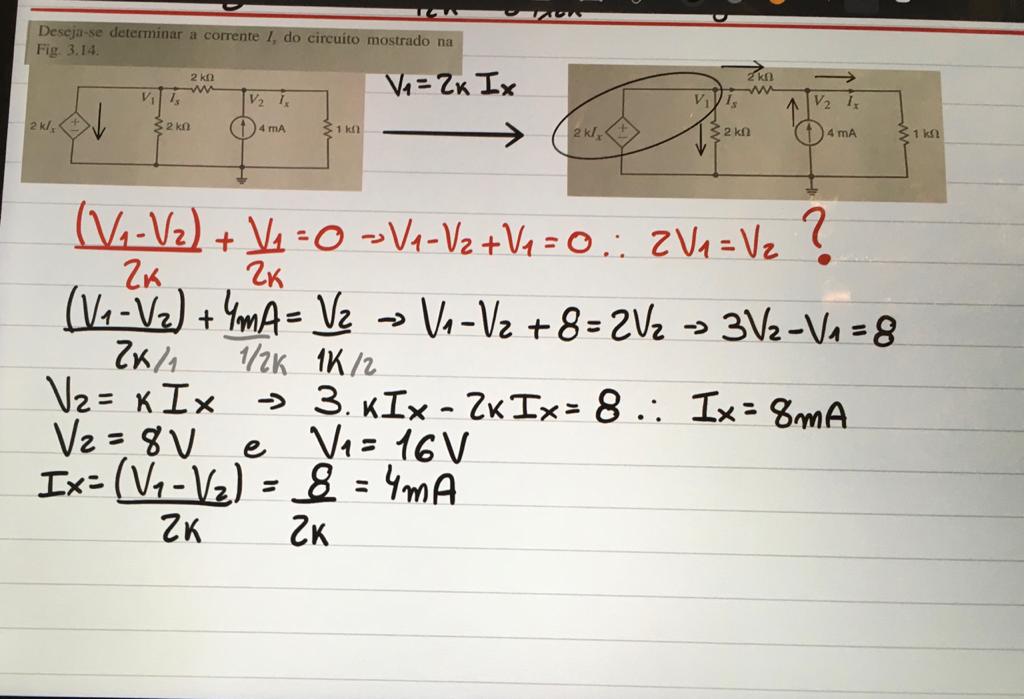 Deseja-se determinar a corrente Is do circuito mostrado na
Fig. 3.14.
2 kΩ
V1 Is
V2 Ix
2 kIx
2 kΩ
4 mA
1 kΩ
V1 = 2K Ix
2 kΩ
V1 Is
V2 Ix
2 kIx
2 kΩ
4 mA
1 kΩ
(V1-V2)/2K + V1/2K = 0 → V1-V2+V1 = 0 ∴ 2V1 = V2 ?
(V1-V2) + 4mA = V2 → V1-V2 + 8 = 2V2 → 3V2-V1 = 8
2K/1 1/2K 1K/2
V2 = KIx → 3.KIx - 2KIx = 8 ∴ Ix = 8mA
V2 = 8V e V1 = 16V
Ix = (V1-V2) = 8 = 4mA
2K 2K